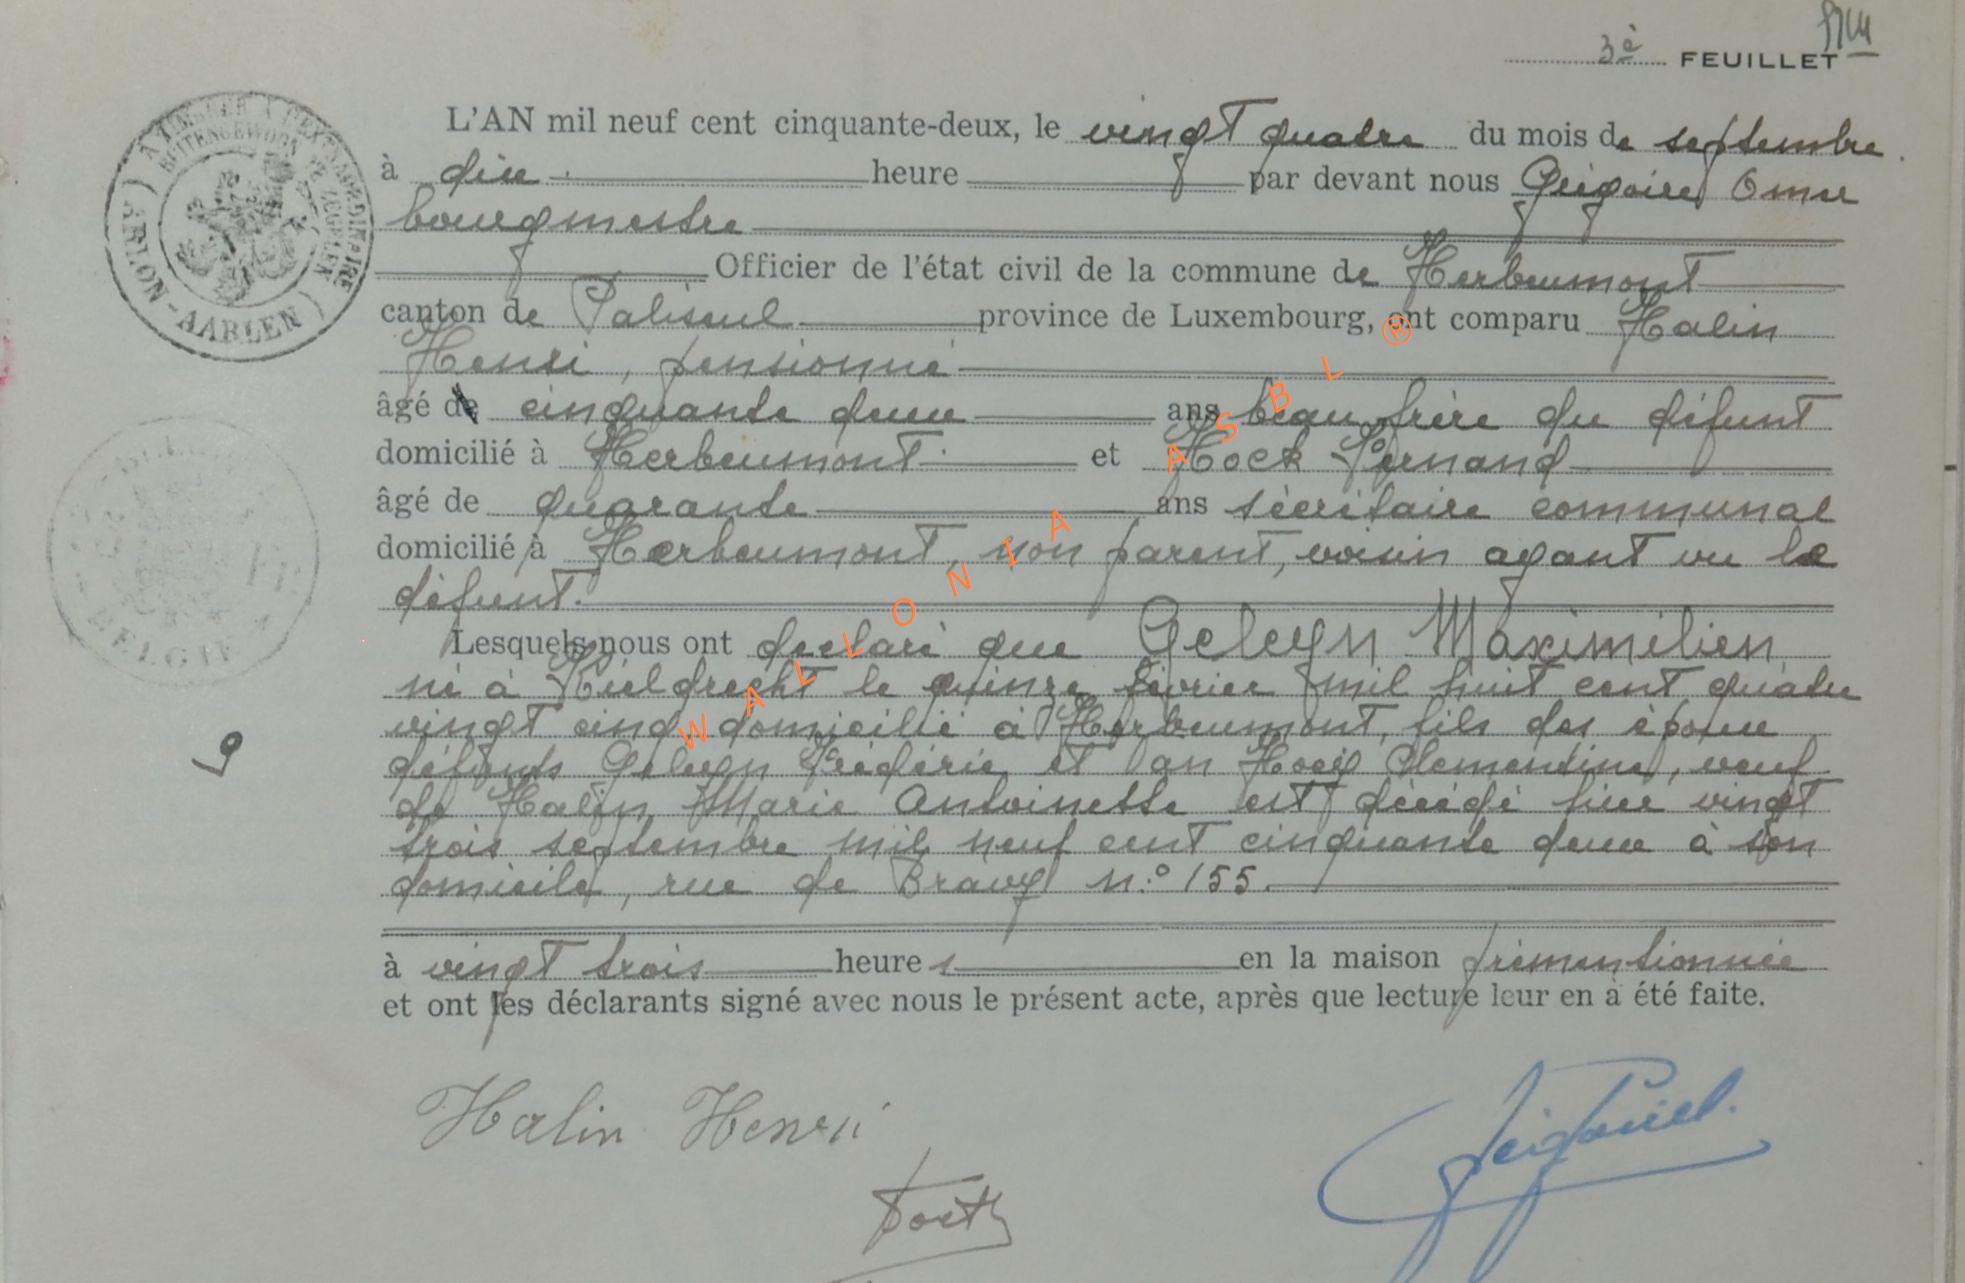 3è FEUILLET
L'AN mil neuf cent cinquante-deux, le vingt quatre du mois de septembre
à dix heure par devant nous Grégoire Omer
bourgmestre
Officier de l'état civil de la commune de Herbeumont
canton de Paliseul province de Luxembourg, ont comparu Halin
Henri, pensionné
âgé de cinquante deux ans beau frère du défunt
domicilié à Herbeumont et Hock Fernand
âgé de quarante ans secrétaire communal
domicilié à Herbeumont, non parent, voisin ayant vu le
défunt.
Lesquels nous ont declaré que Geleyn Maximilien
né à Kieldrecht le quinze février mil huit cent quatre
vingt cinq domicilié à Herbeumont, fils des époux
défunts Geleyn Frédéric et Van Hoey Clementine, veuf
de Halin Marie Antoinette est décédé hier vingt
trois septembre mil neuf cent cinquante deux à son
domicile, rue de Bravy n:° 155.
à vingt trois heures en la maison prémentionnée
et ont les déclarants signé avec nous le présent acte, après que lecture leur en à été faite.
Halin Henri
ARLON - AARLEN
BELGIE
9
WALLONIA ASBL ®